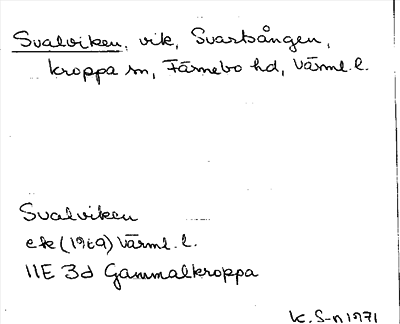 Svalviken, vik, Svartsången,
Kroppa sn, Färnebo hd, Värml. l.
Svalviken
ek (1969) Värml. l.
11E 3d Gammalkroppa
K. S-n 1971